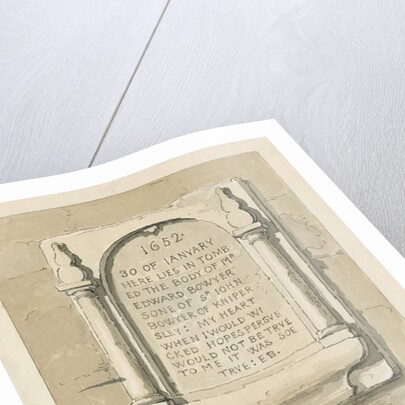 1652.
30 OF IANVARY
HERE LIES IN TOMB
ED THE BODY OF Mr
EDWARD BOWYER
SONE OF Sr IOHN
BOWYER OF KNIPER
SLEY: MY HEART
WHEN I WOULD WI
CKED HOPES PERSVE
WOULD NOT BE TRVE
TO ME IT WAS SOE
TRVE: E.B.